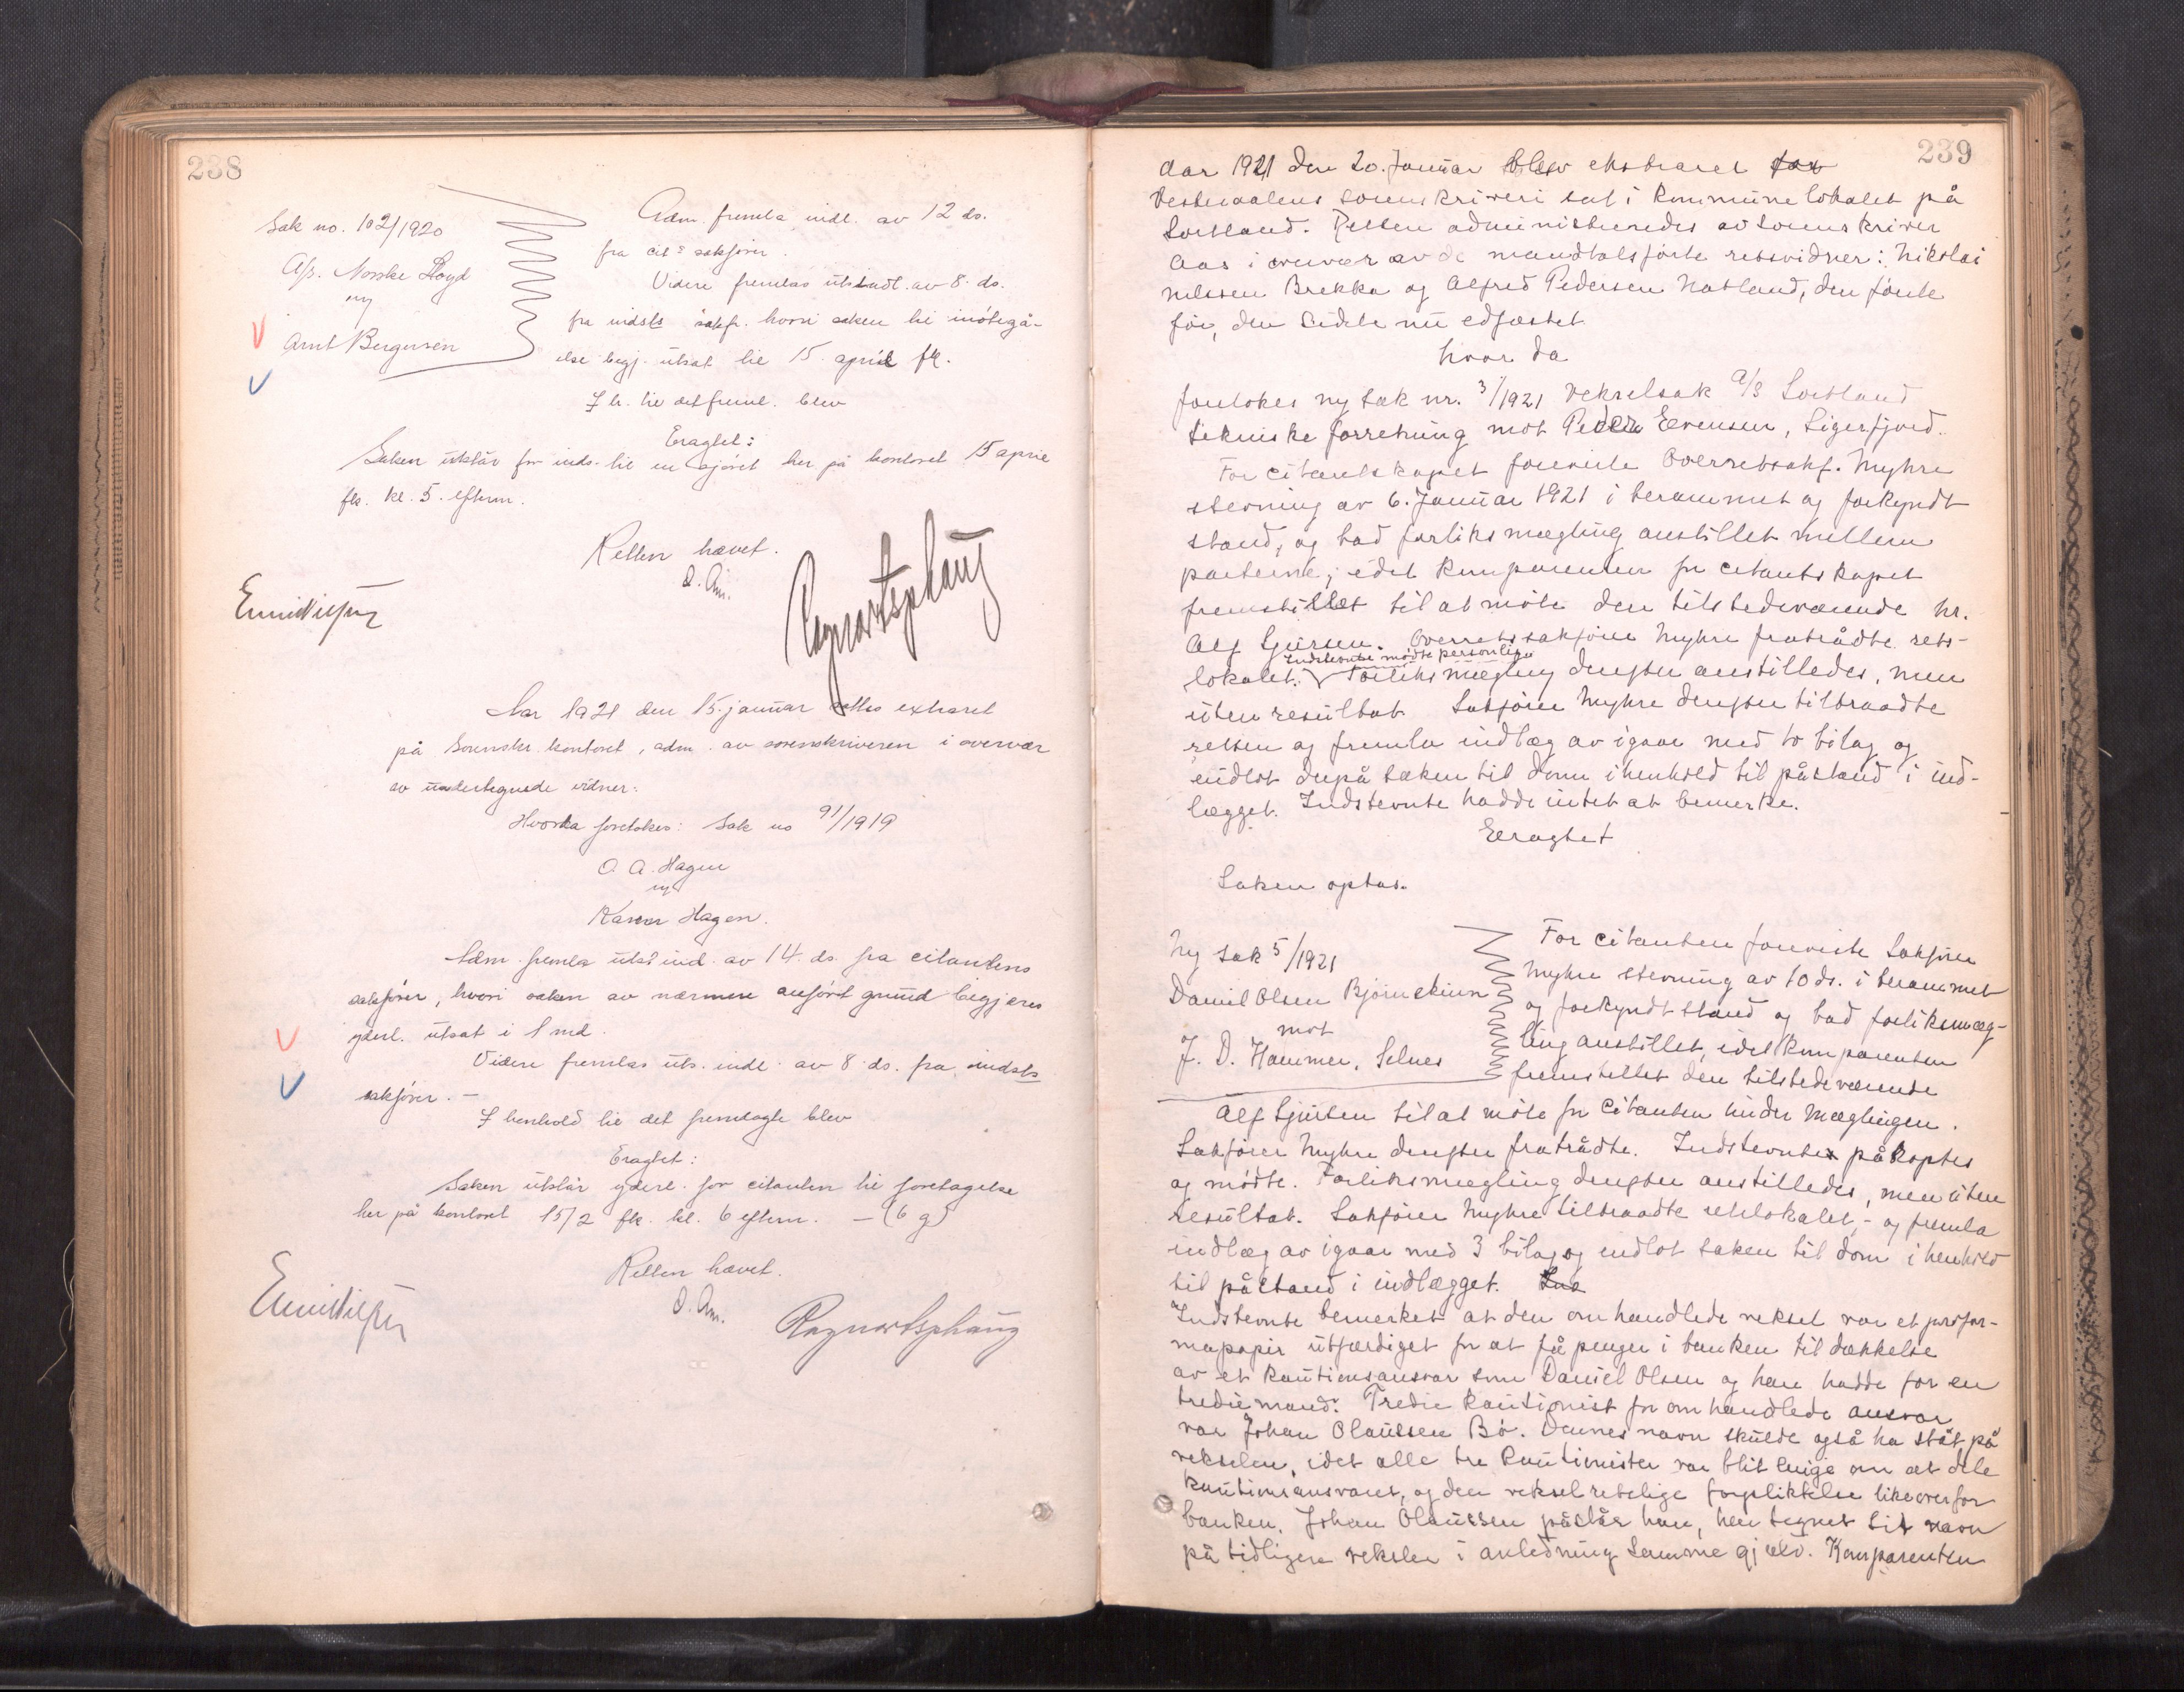 238
Sak no. 102/1920
A/S. Norske Lloyd
mj
Arnt Bergersen
Adm. fremla indl. av 12 ds.
fra cit.s sakfører.
Videre fremlas uts.indl. av 8. ds.
fra indsts sakf. hvori saken til imøtegå-
else begj. utsat til 15. april fk.
I h. til det freml. blev
Eragtet:
Saken utstår for inds. til en sjøret her på kontoret 15 april
fk. kl. 5. efterm.
Retten hævet.
O. Aas.
Aar 1921 den 15. januar sattes extraret
på Sorenskr. kontoret, adm. av sorenskriveren i overvær
av undertegnede vidner:
Hvorda foretokes: Sak no 91/1919
O. A. Hagen
mj
Karen Hagen.
Adm. fremla uts. ind. av 14. ds. fra citantens
sakfører, hvori saken av nærmere anført grund begjæres
yderl. utsat i 1 md.
Videre fremlas uts. indl. av 8 ds. fra indsts
sakfører. —
I henhold til det fremlagte blev
Eragtet:
Saken utstår yderl. for citanten til foretagelse
her på kontoret 15/2 fk. kl. 6 efterm. — (6 g)
Retten hævet.
O. Aas.
239
Aar 1921 den 20. Januar blev ekstraret for
Vesteraalens sorenskriveri sat i Kommunelokalet på
Sortland. Retten administreredes av Sorenskriver
Aas i overvær av de mandtalsførte retsvidner: Nikolai
Nilssen Brekka og Alfred Pedersen Hatland, den første
før, den sidste nu edfæstet.
Hvor da
foretokes ny sak nr. 3/1921 Vekselsak A/S Sortland
tekniske forretning mot Peder Evensen, Sigerfjord.
For citantskapet foreviste Overretssakf. Myhre
stevning av 6. Januar 1921 i berammet og forkyndt
stand, og bad forliksmægling anstillet mellem
parterne, idet komparenten for citantskapet
fremstillet til at møte den tilstedeværende hr.
Alf Sjursen. Overretssakfører Myhre fratrådte rets-
Indstevnte mødte personlig
lokalet. Forliksmægling dengster anstilledes, men
uten resultat. Sakfører Myhre dengster tiltraadte
retten og fremla indlæg av igaar med 10 bilag og
indlot derpå saken til dom i henhold til påstand i ind-
lægget. Indstevnte hadde intet at bemerke.
Eragtet
Saken optas.
Ny sak 5/1921
Daniel Olsen Bjørnskinn
mot
J. D. Hammer, Selnes
For citanten foreviste Sakfører
Myhre stevning av 10 ds. i berammet
og forkyndt stand og bad forliksmæg-
ling anstillet, idet komparenten
fremstillet den tilstedeværende
Alf Sjursen til at møte for Citanten under mæglingen.
Sakfører Myhre dengster fratrådte. Indstevnte påroptes
og mødte. Forliksmægling dengster anstilledes, men uten
resultat. Sakfører Myhre tiltraadte retslokalet,- og fremla
indlæg av igaar med 3 bilag og indlot saken til dom i henhold
til påstand i indlægget. Ind
Indstevnte bemerket at den omhandlede veksel var et profor-
mapapir utfærdiget for at få penger i banken til dækkelse
av et Kautionsansvar som Daniel Olsen og han hadde for en
trediemand. Tredie kautionist for omhandlede ansvar
var Johan Olaussen Bø. Dennes navn skulde også ha ståt på
vekselen, idet alle tre kautionister var blit enige om at dele
kautionsansvaret, og den vekselretslige forpliktelse likeoverfor
banken. Johan Olaussen påstår han, hen tegnet sit navn
på tidligere veksler i anledning samme gjæld. Komparenten